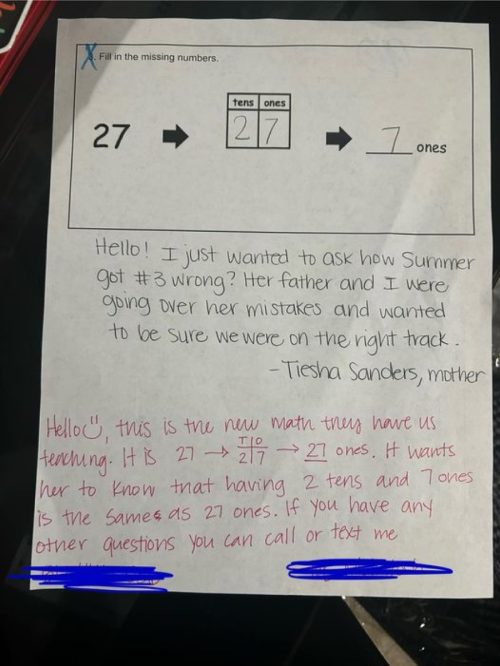 3. Fill in the missing numbers.
tens ones
27 2 7 7 ones
Hello! I just wanted to ask how Summer
got #3 wrong? Her father and I were
going over her mistakes and wanted
to be sure we were on the right track.
-Tiesha Sanders, mother
Hello, this is the new math they have us
teaching. It is 27 → T|O 2|7 → 27 ones. It wants
her to know that having 2 tens and 7 ones
is the same as 27 ones. If you have any
other questions you can call or text me